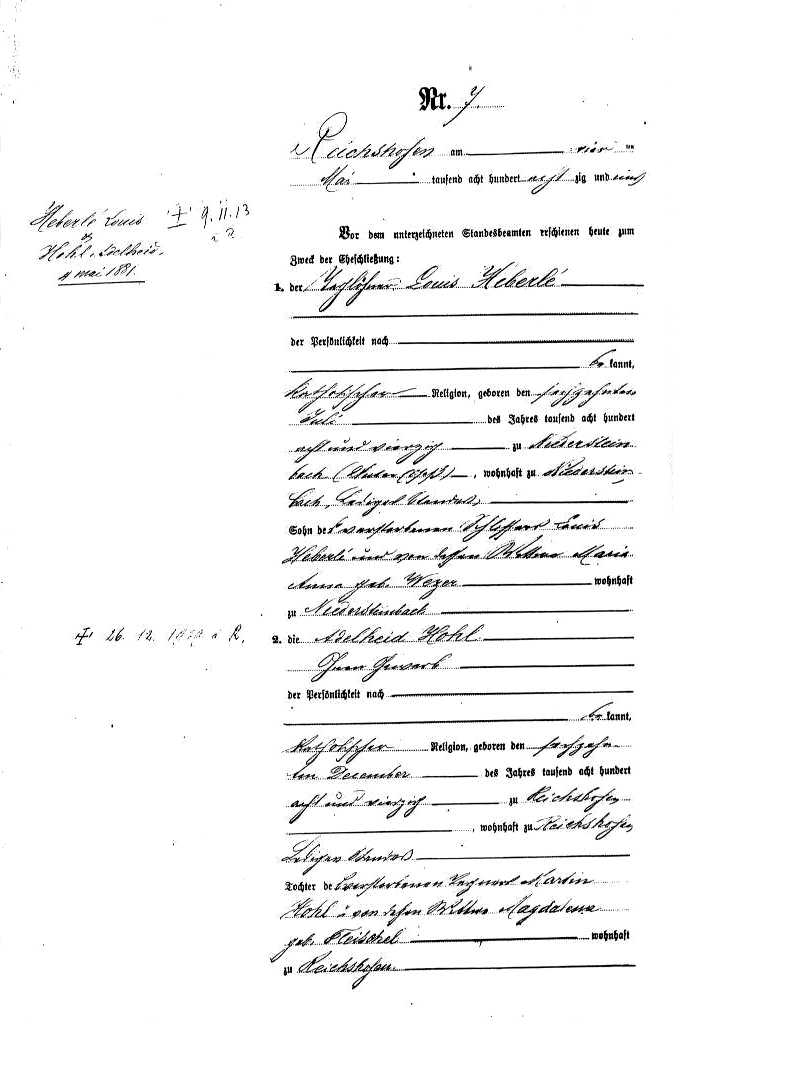 Nr. 7.
Reichshofen am vier ten
Mai tausend acht hundert acht zig und eins
Heberlé Louis + 9.11.13
Hohl Adelheid.
4 mai 1881.
Vor dem unterzeichneten Standesbeamten erschienen heute zum
Zweck der Eheschließung:
1. der Taglöhner Louis Heberlé
der Persönlichkeit nach
be kannt,
katholischer Religion, geboren den sechzehnten
Juli des Jahres tausend acht hundert
acht und vierzig zu Niederstein
bach (Unter Elsaß), wohnhaft zu Niederstein
bach, Ledigen Standes,
Sohn des verstorbenen Schlossers Louis
Heberlé und von dessen Wittwe Maria
Anna geb. Wezer wohnhaft
zu Niedersteinbach
+ 26. 12. à R.
2. die Adelheid Hohl
Gewerb
der Persönlichkeit nach
be kannt,
katholischer Religion, geboren den sechzehn
ten December des Jahres tausend acht hundert
acht und vierzig zu Reichshofen
, wohnhaft zu Reichshofen
Ledigen Standes
Tochter des verstorbenen Martin
Hohl u von dessen Wittwe Magdalena
geb. Fleischel wohnhaft
zu Reichshofen.